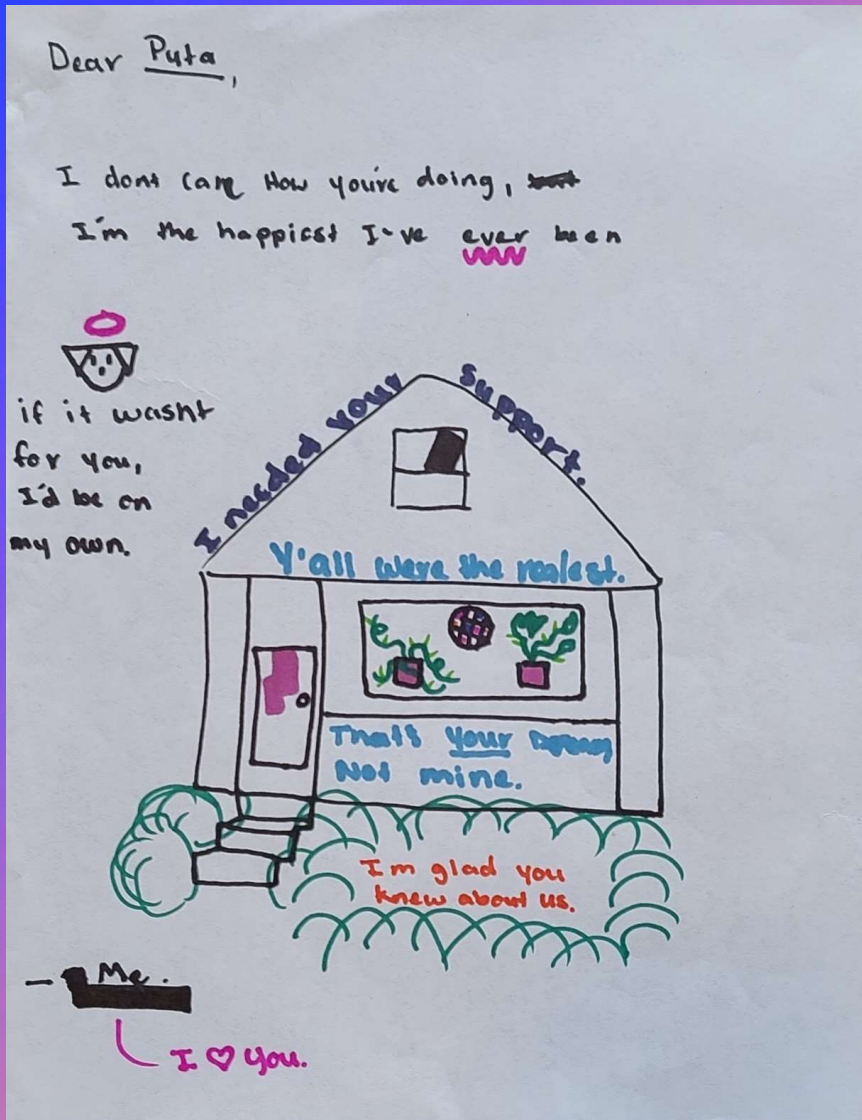 Dear Puta,
I dont care How you're doing,
I'm the happiest I've ever been
if it wasnt
for you,
I'd be on
my own.
I needed your support.
Y'all were the realest.
That's your
Not mine.
I'm glad you
knew about us.
- Me.
I ♡ you.